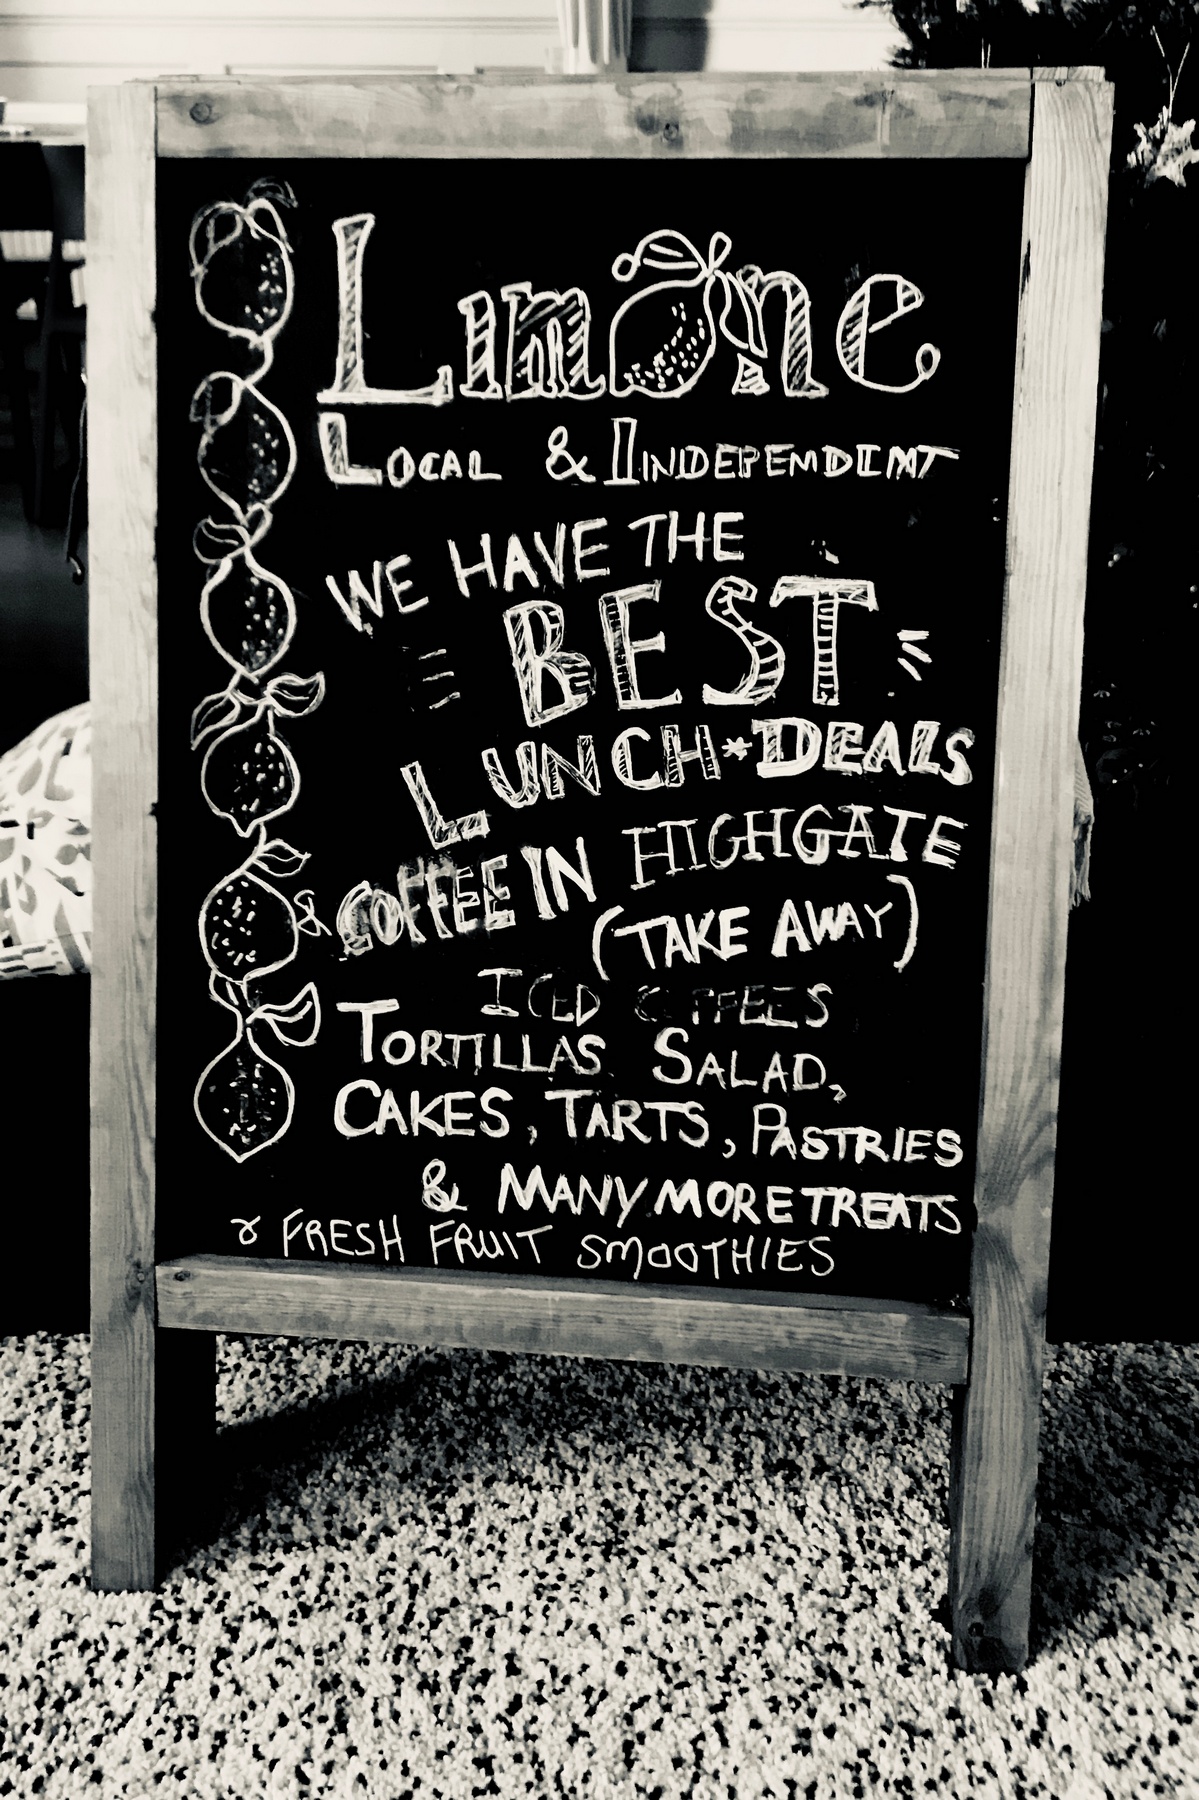 Limone
LOCAL & INDEPEMDIMT
WE HAVE THE
BEST
LUNCH * DEALS
& COFFEE IN HIGHGATE
(TAKE AWAY)
ICED COFFEES
TORTILLAS SALAD,
CAKES, TARTS, PASTRIES
& MANY MORE TREATS
& FRESH FRUIT SMOOTHIES